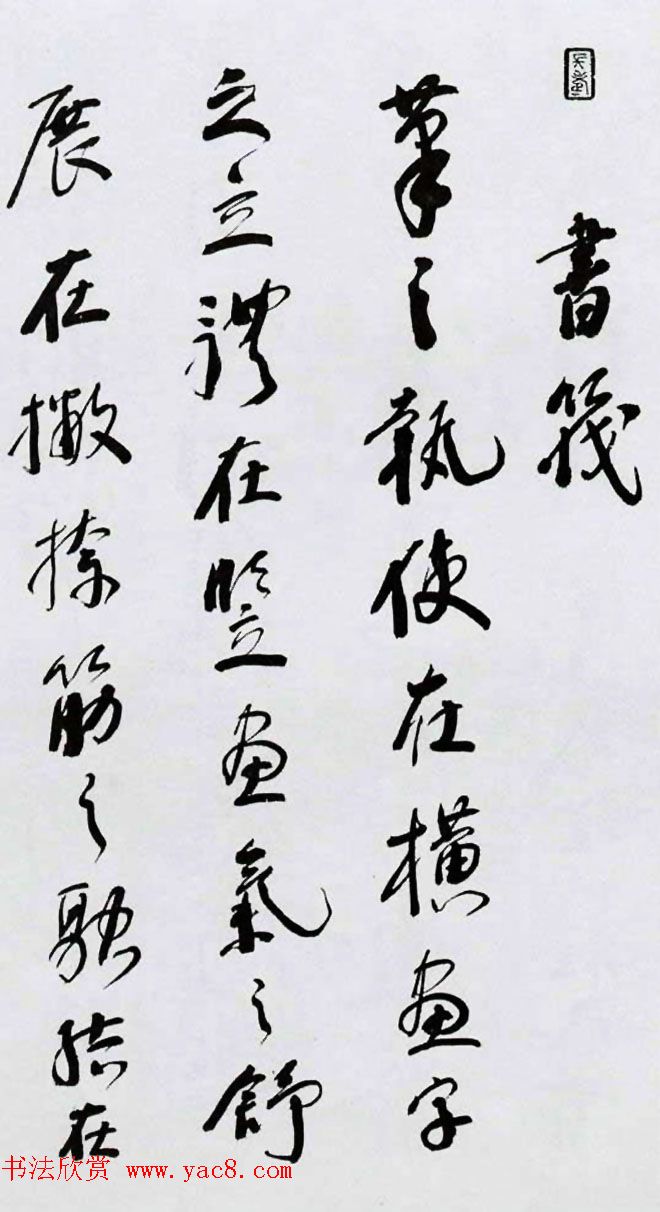 書筏
筆之執使在橫畫字
之立體在豎畫氣之舒
展在撇捺筋之融結在
书法欣赏 www.yac8.com